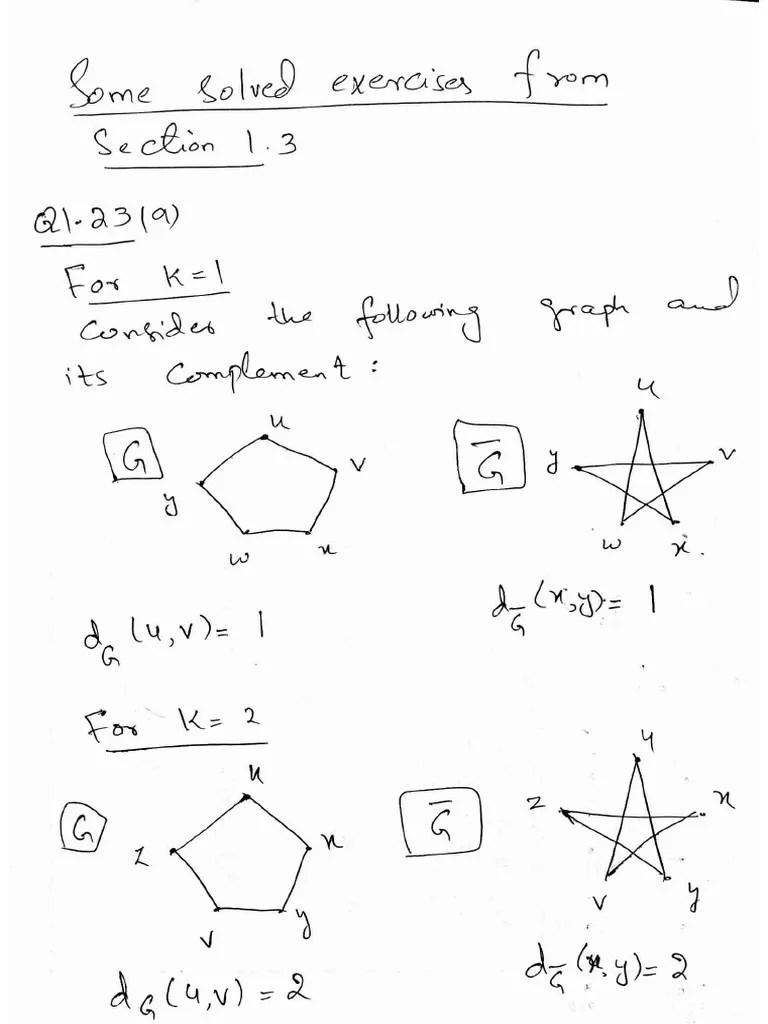 Some solved exercises from
Section 1.3
Q1.23(a)
For K=1
Consider the following graph and
its complement:
G
u
v
x
w
y
G̅
u
v
x.
w
y
d_G(u,v)= 1
d_G̅(x,y)= 1
For K= 2
G
u
x
y
v
z
G̅
u
x
y
v
z
d_G(u,v)=2
d_G̅(x,y)=2